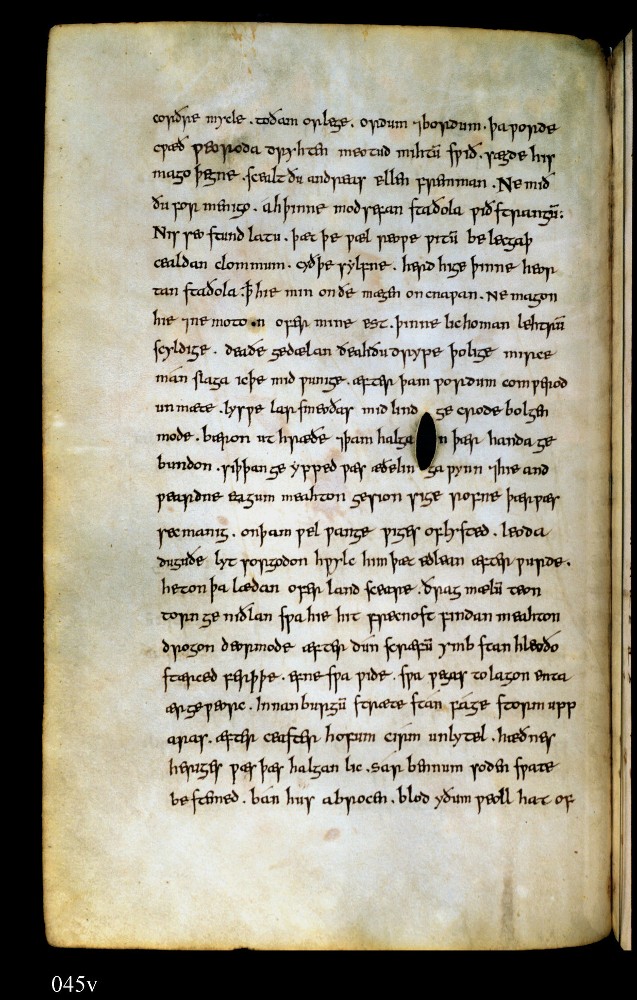 cordre mycle . todam orlege . ordum ⁊bordum . þa ƿorde
cƿæð ƿeoroda dryhten meotud mihtū sƿið . sægde his
mago þegne . scealt ðu andreas ellen fremman . Ne mið
ðu for menigo . ah þinne modsefan staðola ƿið strangū;
Nis seo stund latu . þæt þe ƿæl reoƿe ƿitū belecgaþ
cealdan clommum . cyð þe sylfne . herd hige þinne heor
tan staðola . ꝥ hie min on ðe mægen oncnaƿan . Ne magon
hie ⁊ne moton ofer mine est . þinne lichoman lehtrū
scyldige . deaðe gedælan ðeah ðu drype þolige mirce
man slaga ic þe mid ƿunige . æfter þam ƿordum com ƿerod
unmæte . lysƿe larsmeoðas mid lind ge crode bolgen
mode . bæron ut hræðe ⁊þam halga n þær handa ge
bundon . siþþan ge ypped ƿæs æðelin ga ƿynn ⁊hie and
ƿeardne eagum meahton gesion sige rofne þær ƿæs
sec manig . on þam ƿel ƿange ƿiges oflysted . leoda
duguðe lyt sorgodon hƿylc him þæt edlean æfter ƿurde .
heton þa lædan ofer land sceare . ðrag mælū teon
torn ge niðlan sƿa hie hit frecnost findan meahton
drogon deormode æfter dun scræfū ymb stan hleoðo
stærced ferþþe . efne sƿa ƿide . sƿa ƿegas to lagon enta
ær geƿeorc . Innan burgū stræte stan fage storm upp
aras . æfter ceaster hofum cirm unlytel . hæðnes
heriges ƿæs þæs halgan lic . sar bennum soden sƿate
be stemed . ban hus abrocen . blod yðum ƿeoll hat of
045v